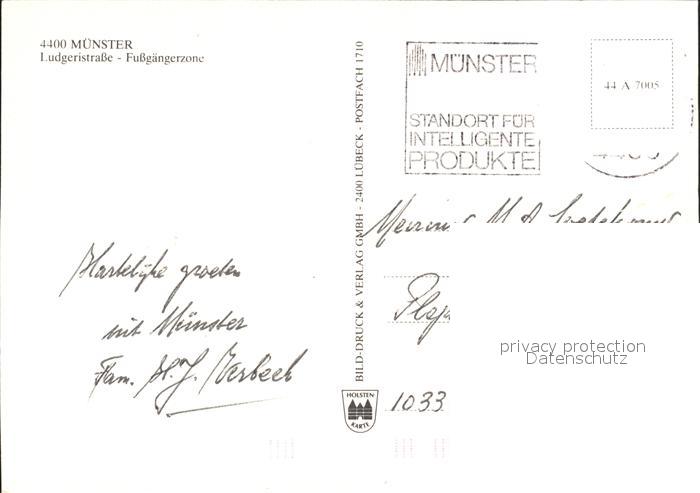 4400 MÜNSTER
Ludgeristraße - Fußgängerzone
Hartelijke groeten
uit Münster
Fam. H.J. Verbeek
BILD-DRUCK & VERLAG GMBH - 2400 LÜBECK - POSTFACH 1710
HOLSTEN
KARTE
MÜNSTER
STANDORT FÜR
INTELLIGENTE
PRODUKTE
44 A 7005
4400
1033
privacy protection
Datenschutz